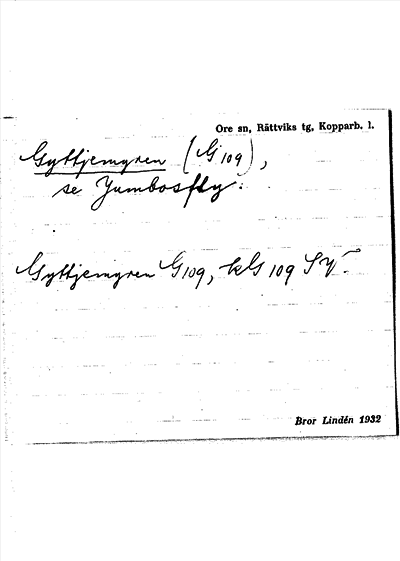 Ore sn, Rättviks tg, Kopparb. l.
Gyttjemyren (G 109),
se Jumbosfly.
Gyttjemyren G109, kG 109 SV.
Bror Lindén 1932